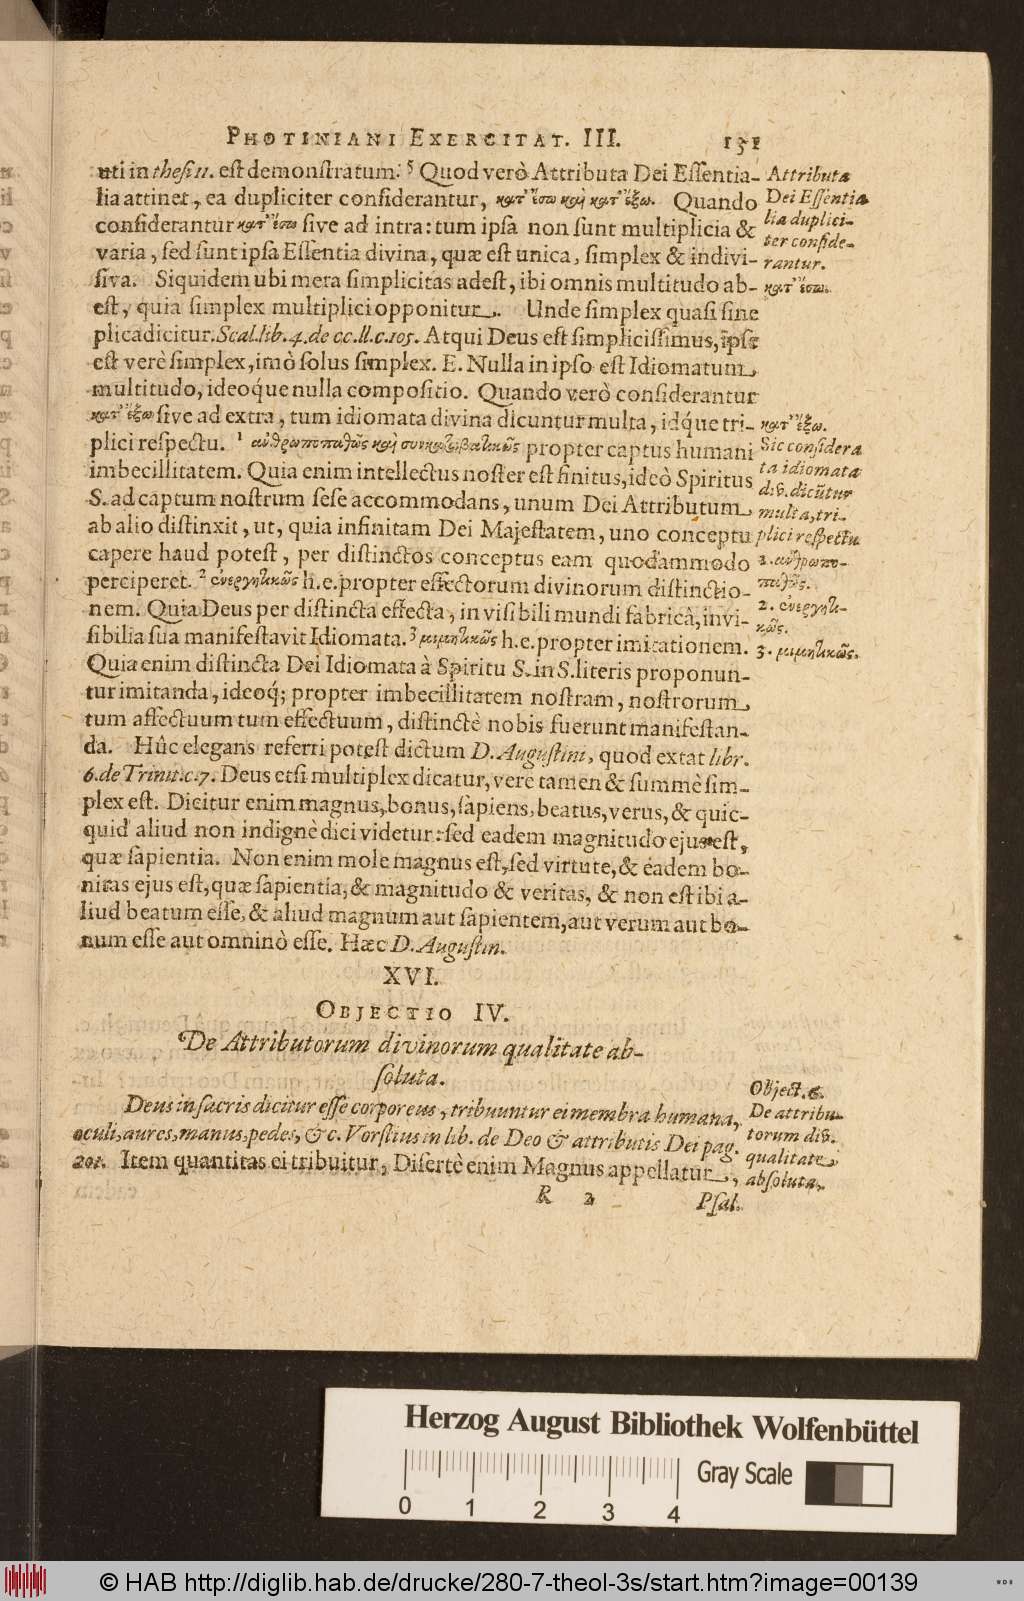 PHOTINIANI EXERCITAT. III. 131
uti in thesi 11. est demonstratum. ⁵ Quod verò Attributa Dei Essentia-
lia attinet, ea dupliciter considerantur, κατ᾽ ἔσω καὶ κατ᾽ ἔξω. Quando
considerantur κατ᾽ ἔσω sive ad intra: tum ipsa non sunt multiplicia &
varia, sed sunt ipsa Essentia divina, quæ est unica, simplex & indivi-
siva. Siquidem ubi mera simplicitas adest, ibi omnis multitudo ab-
est, quia simplex multiplici opponitur. Unde simplex quasi sine
plica dicitur. Scal. lib. 4. de cc. ll. c. 105. Atqui Deus est simplicissimus, ipse
est verè simplex, imò solus simplex. E. Nulla in ipso est Idiomatum
multitudo, ideoq́ue nulla compositio. Quando verò considerantur
κατ᾽ ἔξω sive ad extra, tum idiomata divina dicuntur multa, idq́ue tri-
plici respectu. ¹ ἀνθρωποπαθῶς καὶ συγκαταβατικῶς propter captus humani
imbecillitatem. Quia enim intellectus noster est finitus, ideò Spiritus
S. ad captum nostrum sese accommodans, unum Dei Attributum
ab alio distinxit, ut, quia infinitam Dei Majestatem, uno conceptu
capere haud potest, per distinctos conceptus eam quodammodo
perciperet. ² ἐνεργητικῶς h. e. propter effectorum divinorum distinctio-
nem. Quia Deus per distincta effecta, in visibili mundi fabricâ, invi-
sibilia sua manifestavit Idiomata. ³ μιμητικῶς h. e. propter imitationem.
Quia enim distincta Dei Idiomata à Spiritu S. in S. literis proponun-
tur imitanda, ideoq́; propter imbecillitatem nostram, nostrorum
tum affectuum tum effectuum, distinctè nobis fuerunt manifestan-
da. Hûc elegans referri potest dictum D. Augustini, quod extat libr.
6. de Trinit. c. 7. Deus etsi multiplex dicatur, verè tamen & summè sim-
plex est. Dicitur enim magnus, bonus, sapiens, beatus, verus, & quic-
quid aliud non indignè dici videtur: sed eadem magnitudo ejus est,
quæ sapientia. Non enim mole magnus est, sed virtute, & eadem bo-
nitas ejus est, quæ sapientia, & magnitudo & veritas, & non est ibi a-
liud beatum esse, & aliud magnum aut sapientem, aut verum aut bo-
num esse aut omninò esse. Hæc D. Augustin.
XVI.
OBJECTIO IV.
De Attributorum divinorum qualitate ab-
soluta.
Deus in sacris dicitur esse corporeus, tribuuntur ei membra humana,
oculi, aures, manus, pedes, &c. Vorstius in lib. de Deo & attributis Dei pag.
201. Item quantitas ei tribuitur, Disertè enim Magnus appellatur,
R 2 Psal.
Attributa
Dei Essentia
lia duplici-
ter conside-
rantur.
κατ᾽ ἔσω.
κατ᾽ ἔξω.
Sic considera
ta idiomata
div. dicūtur
multa, tri-
plici respectu
1. ἀνθρωπο-
παθῶς.
2. ἐνεργητι-
κῶς.
3. μιμητικῶς.
Object. 6.
De attribu
torum div.
qualitate
absoluta.
Herzog August Bibliothek Wolfenbüttel
0 1 2 3 4
Gray Scale
© HAB http://diglib.hab.de/drucke/280-7-theol-3s/start.htm?image=00139